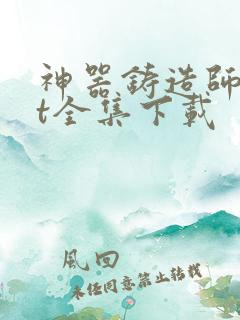 神器鋳造師
t全集下載
風回
未任同意禁止转载